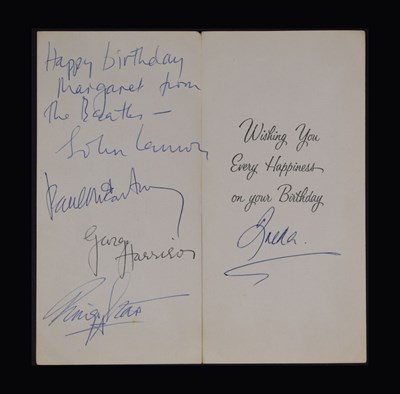 Happy birthday
Margaret from
The Beatles —
John Lennon
Paul McCartney
George
Harrison
Ringo Starr
Wishing You
Every Happiness
on your Birthday
Breda.